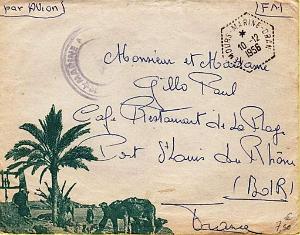 (par Avion)
(FM)
MARINE-ORAN
10-12
1956
Monsieur et Madame
Gillo Paul
Cafe Restaurant de La Plage
Port St Louis du Rhône
(BdR)
France